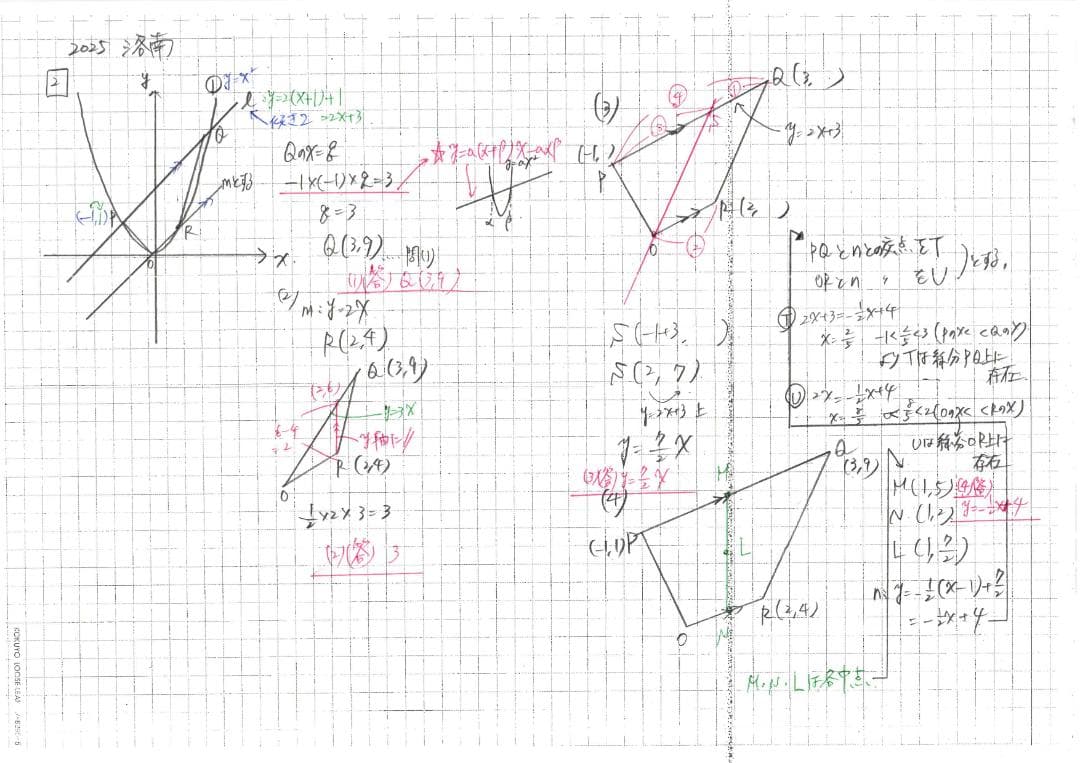 2025 洛南
2
y
① y=x²
l: y=2(x+1)+1
傾き2 =2x+3
Q
mとする
(-1,1) P
R
O
x
Qのx=q
-1×(-1)×q=3
q=3
Q(3,9)…問(1)
(1)(答) Q(3,9)
☆ y=a(α+β)x-aαβ
y=ax²
α β
(2) m:y=2x
R(2,4)
Q(3,9)
(2,6)
y=3x
6-4
=2
y軸に//
R(2,4)
O
1/2×2×3=3
(2)(答) 3
(3)
④
①
Q(3, )
S
③
y=2x+3
(-1, )
P
R(2, )
O
②
S(-1+3, )
S(2, 7)
y=2x+3上
y=7/2x
(3)(答) y=7/2x
(4)
M
Q
(3,9)
(-1,1)P
L
R(2,4)
O
N
M.N.Lは各中点
PQとnとの交点をT
ORとn 〃 をU
)とする。
Ⓣ 2x+3=-1/2x+4
x=2/5 -1<2/5<3(Pのx< <Qのx)
よりTは線分PQ上に
存在
Ⓤ 2x=-1/2x+4
x=8/5 0<8/5<2(Oのx< <Rのx)
Uは線分OR上に
存在
M(1,5)
(4)(答)
N(1,2)
y=-1/2x+4
L(1,7/2)
n:y=-1/2(x-1)+7/2
=-1/2x+4
KOKUYO LOOSE-LEAF